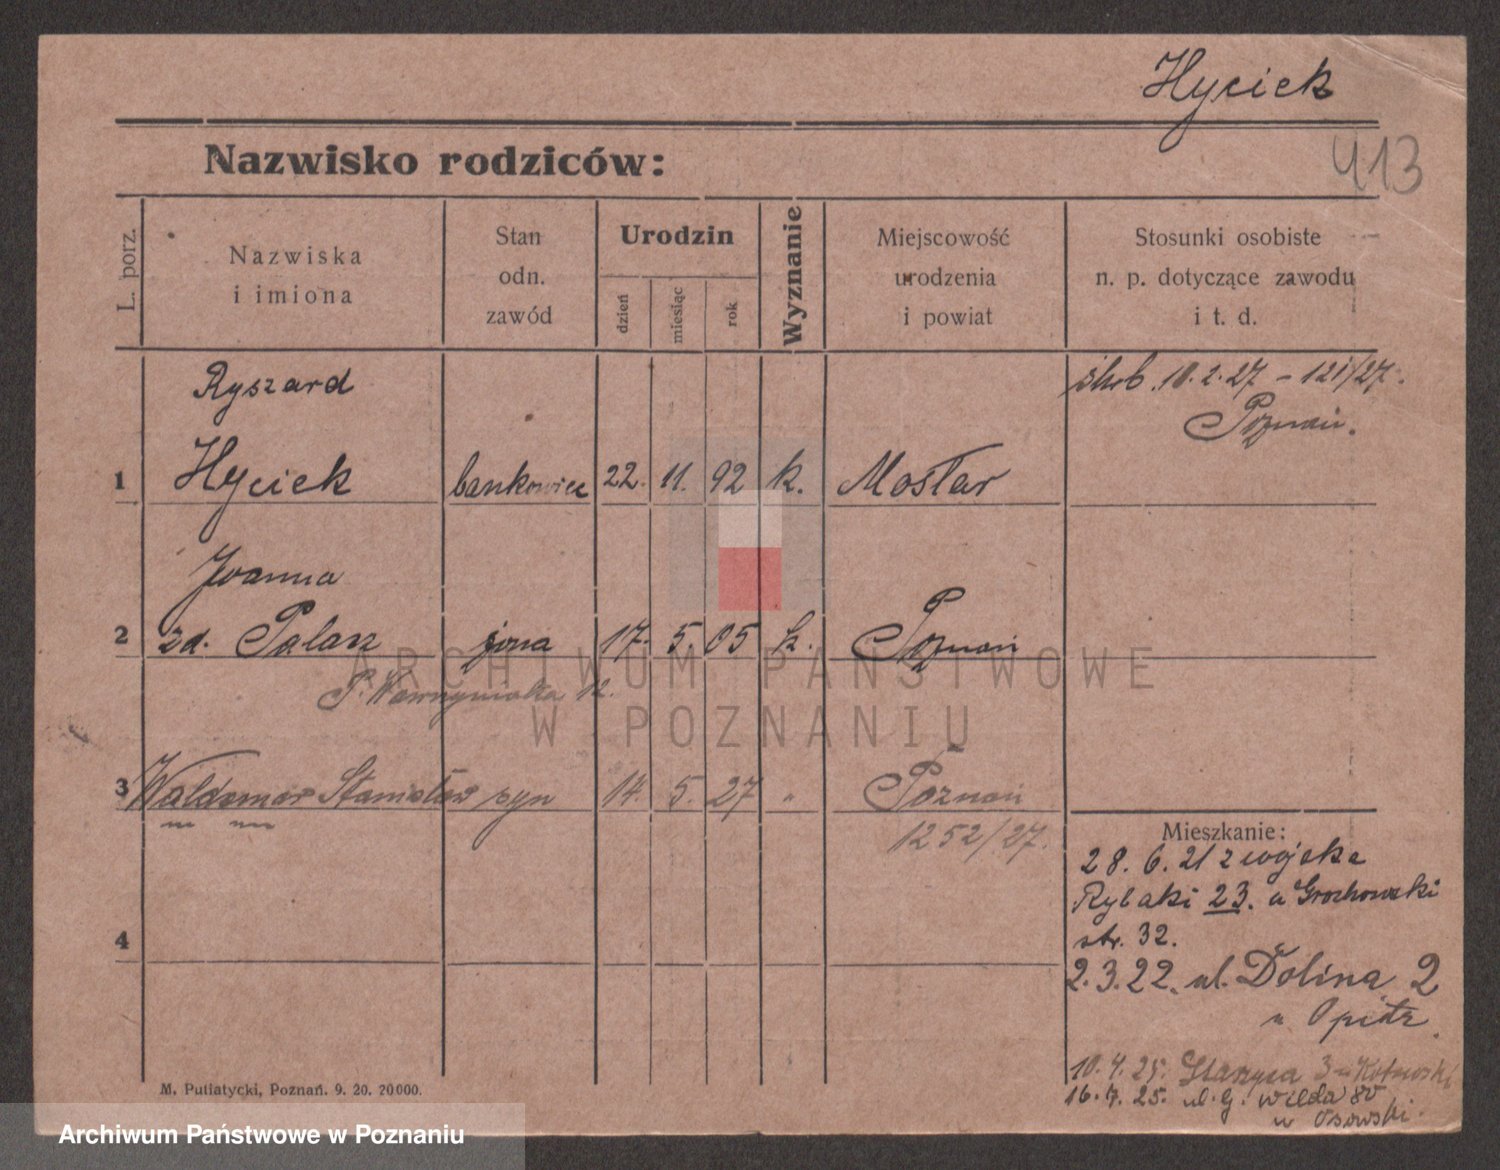 Hyciek
413
Nazwisko rodziców:
L. porz.
Nazwiska
i imiona
Stan
odn.
zawód
Urodzin
dzień
miesiąc
rok
Wyznanie
Miejscowość
urodzenia
i powiat
Stosunki osobiste
n. p. dotyczące zawodu
i t. d.
Ryszard
ślub. 10. 2. 27 – 121/27.
Poznań.
1 Hyciek bankowiec 22. 11. 92 k. Mostar
Joanna
2 zd. Palacz żona 17. 5. 05 k. Poznań
12.
3 Waldemar Stanisław syn 14. 5. 27 " Poznań
1252/27.
4
Mieszkanie:
28. 6. 21 z wojska
Rybaki 23. u Grochowski
str. 32.
2. 3. 22. ul. Dolina 2
u Opitz.
10. 4. 25. Staszyca 3 u
16. 7. 25. ul. G. Wilda 80
u Osowski.
M. Putiatycki, Poznań. 9. 20. 20000.
ARCHIWUM PAŃSTWOWE
W POZNANIU
Archiwum Państwowe w Poznaniu